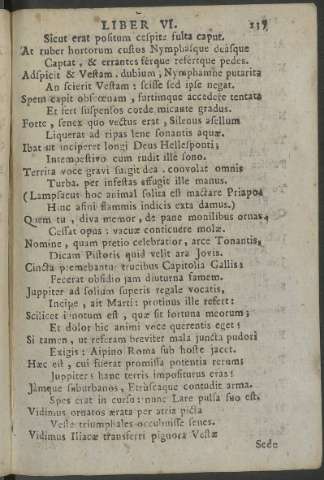 LIBER VI. 139
Sicut erat positum cespite fulta caput.
At ruber hortorum custos Nymphasque deasque
Captat, & errantes ferque refertque pedes.
Adspicit & Vestam. dubium, Nymphamne putarit
An scierit Vestam: scisse sed ipse negat.
Spem capit obscœnam, furtimque accedere tentata
Et fert suspensos corde micante gradus.
Forte, senex quo vectus erat, Silenus asellum
Liquerat ad ripas lene sonantis aquæ.
Ibat ut inciperet longi Deus Hellesponti;
Intempestivo cum rudit ille sono.
Territa voce gravi surgit dea. convolat omnis
Turba. per infestas effugit ille manus.
(Lampsacus hoc animal solita est mactare Priapo,
Hinc asini flammis indicis exta damus.)
Quem tu, diva memor, de pane monilibus ornas,
Cessat opus: vacuæ conticuere molæ.
Nomine, quam pretio celebratior, arce Tonantis,
Dicam Pistoris quid velit ara Jovis.
Cincta premebantur trucibus Capitolia Gallis;
Fecerat obsidio jam diuturna famem.
Juppiter ad solium superis regale vocatis,
Incipe, ait Marti: protinus ille refert:
Scilicet ignotum est, quæ sit fortuna meorum;
Et dolor hic animi voce querentis eget:
Si tamen, ut referam breviter mala juncta pudori
Exigis: Alpino Roma sub hoste jacet.
Hæc est, cui fuerat promissa potentia rerum;
Juppiter: hanc terris impositurus eras:
Jamque suburbanos, Etruscaque contudit arma.
Spes erat in cursu: nunc Lare pulsa suo est.
Vidimus ornatos ærata per atria picta
Veste triumphales occubuisse senes.
Vidimus Iliacæ transferri pignora Vestæ
Sede